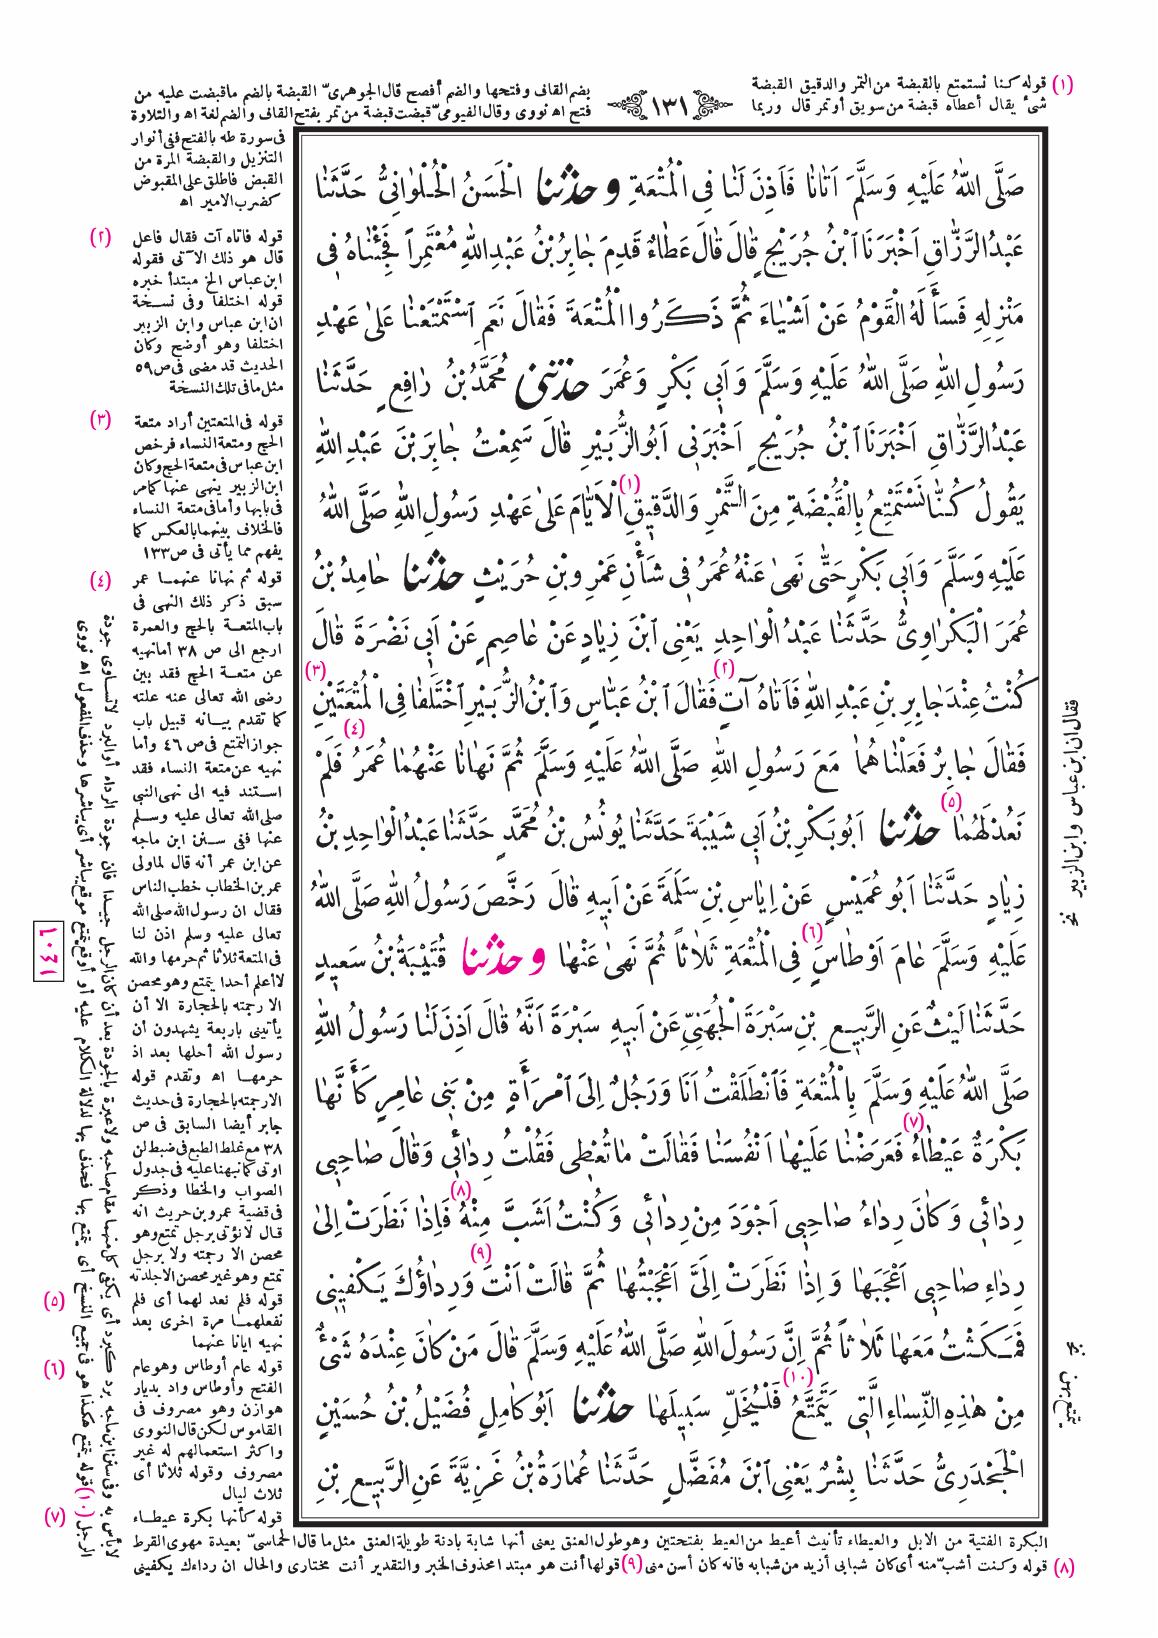 (١) قوله كنا نستمتع بالقبضة من التمر والدقيق القبضة
شئ يقال أعطاه قبضة من سويق أو تمر قال وربما
١٣١
بضم القاف وفتحها والضم أفصح قال الجوهرىّ القبضة بالضم ماقبضت عليه من
فتح اه نووى وقال الفيومىّ قبضت قبضة من تمر بفتح القاف والضم لغة اه والتلاوة
فى سورة طه بالفتح ففى أنوار
التنزيل والقبضة المرة من
القبض فاطلق على المقبوض
كضرب الامير اه
(٢) قوله فاتاه آت فقال فاعل
قال هو ذلك الآتى فقوله
ابن عباس الخ مبتدأ خبره
قوله اختلفا وفى نسخة
ان ابن عباس وابن الزبير
اختلفا وهو أوضح وكان
الحديث قد مضى فى ص ٥٩
مثل مافى تلك النسخة
(٣) قوله فى المتعتين أراد متعة
الحج ومتعة النساء فرخص
ابن عباس فى متعة الحج وكان
ابن الزبير ينهى عنها كما مر
فى بابها وأما فى متعة النساء
فالخلاف بينهما بالعكس كما
يفهم مما يأتى فى ص ١٣٣
(٤) قوله ثم نهانا عنهما عمر
سبق ذكر ذلك النهى فى
باب المتعة بالحج والعمرة
ارجع الى ص ٣٨ أما نهيه
عن متعة الحج فقد بين
رضى الله تعالى عنه علته
كما تقدم بيانه قبيل باب
جواز التمتع فى ص ٤٦ وأما
نهيه عن متعة النساء فقد
استند فيه الى نهى النبى
صلى الله تعالى عليه وسلم
عنها ففى سنن ابن ماجه
عن ابن عمر أنه قال لما ولى
عمر بن الخطاب خطب الناس
فقال ان رسول الله صلى الله
تعالى عليه وسلم اذن لنا
فى المتعة ثلاثا ثم حرمها والله
لا أعلم أحدا يتمتع وهو محصن
الا رجمته بالحجارة الا أن
يأتينى باربعة يشهدون أن
رسول الله أحلها بعد اذ
حرمها اه وتقدم قوله
الا رجمته بالحجارة فى حديث
جابر أيضا السابق فى ص
٣٨ مع غلط الطبع فى ضبط لن
اوتى كما نبهنا عليه فى جدول
الصواب والخطا وذكر
فى قضية عمرو بن حريث انه
قال لا نؤتى برجل تمتع وهو
محصن الا رجمته ولا برجل
تمتع وهو غير محصن الا جلدته
(٥) قوله فلم نعد لهما أى فلم
نفعلهما مرة اخرى بعد
نهيه ايانا عنهما
(٦) قوله عام أوطاس وهو عام
الفتح وأوطاس واد بديار
هوازن وهو مصروف فى
القاموس لكن قال النووى
واكثر استعمالهم له غير
مصروف وقوله ثلاثا أى
ثلاث ليال
(٧) قوله كأنها بكرة عيطاء
صَلَّى اللهُ عَلَيْهِ وَسَلَّمَ اَتَانَا فَاَذِنَ لَنَا فِى الْمُتْعَةِ وحدثنا الْحَسَنُ الْحُلْوَانِىُّ حَدَّثَنَا
عَبْدُالرَّزَّاقِ اَخْبَرَنَا ابْنُ جُرَيْجٍ قَالَ قَالَ عَطَاءٌ قَدِمَ جَابِرُ بْنُ عَبْدِاللهِ مُعْتَمِراً فَجِئْنَاهُ فِى
مَنْزِلِهِ فَسَأَلَهُ الْقَوْمُ عَنْ اَشْيَاءَ ثُمَّ ذَكَرُوا الْمُتْعَةَ فَقَالَ نَعَمِ اسْتَمْتَعْنَا عَلىٰ عَهْدِ
رَسُولِ اللهِ صَلَّى اللهُ عَلَيْهِ وَسَلَّمَ وَاَبِى بَكْرٍ وَعُمَرَ حدثنى مُحَمَّدُ بْنُ رَافِعٍ حَدَّثَنَا
عَبْدُالرَّزَّاقِ اَخْبَرَنَا ابْنُ جُرَيْجٍ اَخْبَرَنِى اَبُوالزُّبَيْرِ قَالَ سَمِعْتُ جَابِرَ بْنَ عَبْدِ اللهِ
يَقُولُ كُنَّا نَسْتَمْتِعُ بِالْقُبْضَةِ مِنَ التَّمْرِ وَالدَّقِيقِ (١) الْاَيَّامَ عَلىٰ عَهْدِ رَسُولِ اللهِ صَلَّى اللهُ
عَلَيْهِ وَسَلَّمَ وَاَبِى بَكْرٍ حَتّٰى نَهىٰ عَنْهُ عُمَرُ فِى شَأْنِ عَمْرِو بْنِ حُرَيْثٍ حدثنا حَامِدُ بْنُ
عُمَرَ الْبَكْرَاوِىُّ حَدَّثَنَا عَبْدُ الْوَاحِدِ يَعْنِى ابْنَ زِيَادٍ عَنْ عَاصِمٍ عَنْ اَبِى نَضْرَةَ قَالَ
كُنْتُ عِنْدَ جَابِرِ بْنِ عَبْدِ اللهِ فَاَتَاهُ آتٍ (٢) فَقَالَ ابْنُ عَبَّاسٍ وَابْنُ الزُّبَيْرِ اخْتَلَفَا فِى الْمُتْعَتَيْنِ (٣)
فَقَالَ جَابِرٌ فَعَلْنَاهُمَا مَعَ رَسُولِ اللهِ صَلَّى اللهُ عَلَيْهِ وَسَلَّمَ ثُمَّ نَهَانَا عَنْهُمَا (٤) عُمَرُ فَلَمْ
نَعُدْ لَهُمَا (٥) حدثنا اَبُو بَكْرِ بْنُ اَبِى شَيْبَةَ حَدَّثَنَا يُونُسُ بْنُ مُحَمَّدٍ حَدَّثَنَا عَبْدُ الْوَاحِدِ بْنُ
زِيَادٍ حَدَّثَنَا اَبُو عُمَيْسٍ عَنْ اِيَاسِ بْنِ سَلَمَةَ عَنْ اَبِيهِ قَالَ رَخَّصَ رَسُولُ اللهِ صَلَّى اللهُ
عَلَيْهِ وَسَلَّمَ عَامَ اَوْطَاسٍ (٦) فِى الْمُتْعَةِ ثَلَاثاً ثُمَّ نَهىٰ عَنْهَا وحدثنا قُتَيْبَةُ بْنُ سَعِيدٍ
حَدَّثَنَا لَيْثٌ عَنِ الرَّبِيعِ بْنِ سَبْرَةَ الْجُهَنِىِّ عَنْ اَبِيهِ سَبْرَةَ اَنَّهُ قَالَ اَذِنَ لَنَا رَسُولُ اللهِ
صَلَّى اللهُ عَلَيْهِ وَسَلَّمَ بِالْمُتْعَةِ فَانْطَلَقْتُ اَنَا وَرَجُلٌ اِلَى امْرَأَةٍ مِنْ بَنِى عَامِرٍ كَأَنَّهَا
بَكْرَةٌ عَيْطَاءُ (٧) فَعَرَضْنَا عَلَيْهَا اَنْفُسَنَا فَقَالَتْ مَا تُعْطِى فَقُلْتُ رِدَائِى وَقَالَ صَاحِبِى
رِدَائِى وَكَانَ رِدَاءُ صَاحِبِى اَجْوَدَ مِنْ رِدَائِى وَكُنْتُ اَشَبَّ مِنْهُ (٨) فَاِذَا نَظَرَتْ اِلىٰ
رِدَاءِ صَاحِبِى اَعْجَبَهَا وَاِذَا نَظَرَتْ اِلَىَّ اَعْجَبْتُهَا ثُمَّ قَالَتْ اَنْتَ (٩) وَرِدَاؤُكَ يَكْفِينِى
فَمَكَثْتُ مَعَهَا ثَلَاثاً ثُمَّ اِنَّ رَسُولَ اللهِ صَلَّى اللهُ عَلَيْهِ وَسَلَّمَ قَالَ مَنْ كَانَ عِنْدَهُ شَىْءٌ
مِنْ هٰذِهِ النِّسَاءِ الَّتِى يَتَمَتَّعُ (١٠) فَلْيُخَلِّ سَبِيلَهَا حدثنا اَبُو كَامِلٍ فُضَيْلُ بْنُ حُسَيْنٍ
الْجَحْدَرِىُّ حَدَّثَنَا بِشْرٌ يَعْنِى ابْنَ مُفَضَّلٍ حَدَّثَنَا عُمَارَةُ بْنُ غَزِيَّةَ عَنِ الرَّبِيعِ بْنِ
البكرة الفتية من الابل والعيطاء تأنيث أعيط من العيط بفتحتين وهو طول العنق يعنى أنها شابة بادنة طويلة العنق مثل ما قال الحماسىّ بعيدة مهوى القرط
(٨) قوله وكنت أشبّ منه أى كان شبابى أزيد من شبابه فانه كان أسن منى (٩) قولها أنت هو مبتد اعذوف الخبر والتقدير أنت مختارى والحال ان رداءك يكفينى
فقال ان ابن عباس وابن الزبير نخ
يتمتع بهن نخ
١٠٤١